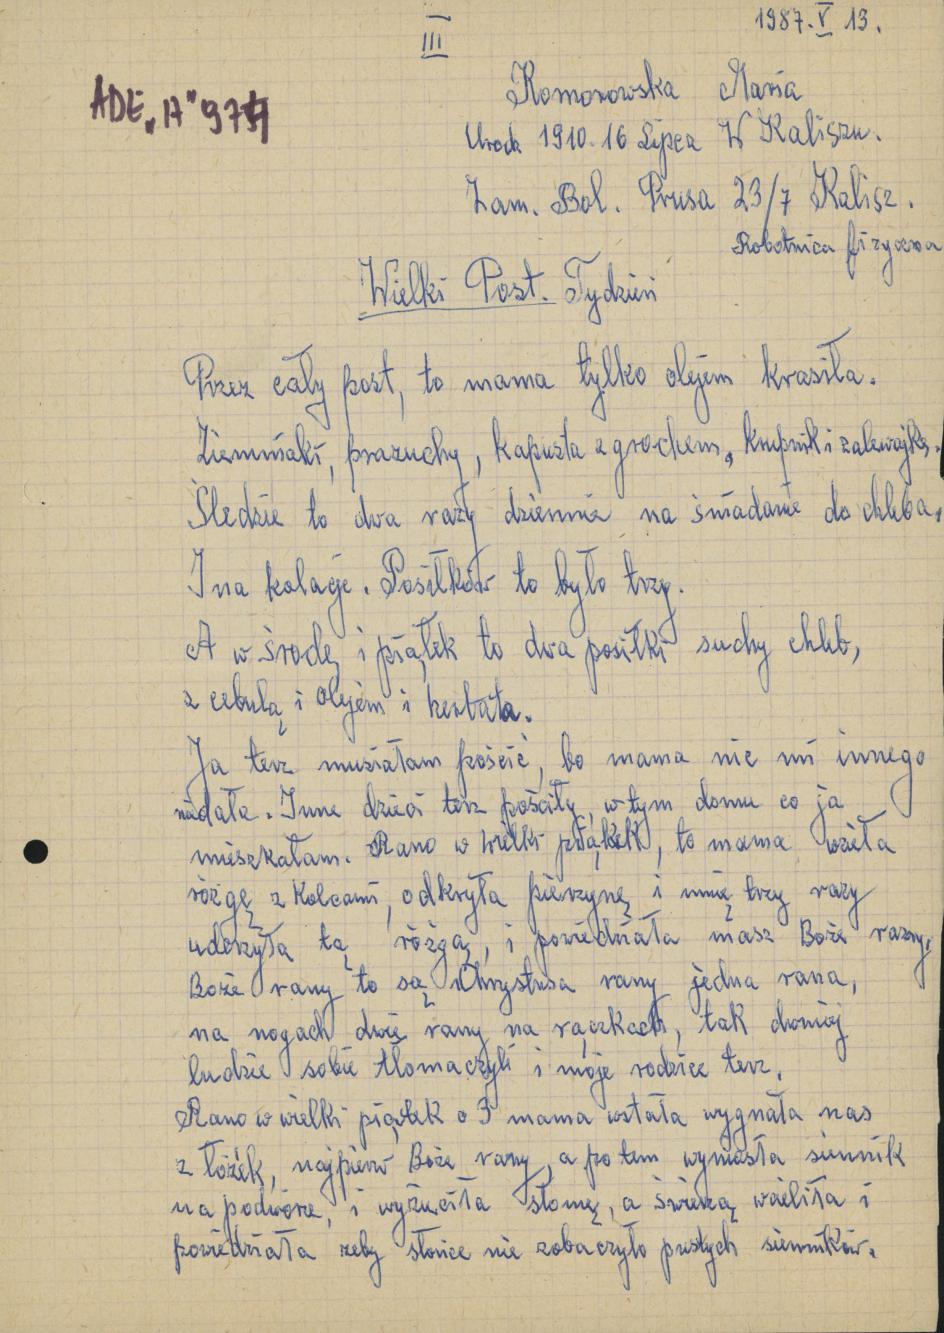 III
1987.V 13.
ADE „A" 971
Komorowska Maria
Urodz 1910. 16 Lipca W Kaliszu.
Zam. Bol. Prusa 23/7 Kalisz.
Robotnica fizyczna
Wielki Post. Tydzień
Przez cały post, to mama tylko olejem krasiła.
Ziemniaki, prazuchy, kapusta z grochem, krupnik i zalewajka.
Śledzie to dwa razy dziennie na śniadanie do chleba,
I na kolacje. Posiłków to było trzy.
A w środę i piątek to dwa posiłki suchy chleb,
z cebulą i olejem i herbata.
Ja terz musiałam pościć, bo mama nic mi innego
niedała. Inne dzieci terz pościły, w tym domu co ja
mieszkałam. Rano w Wielki piątek, to mama wzieła
rózgę z Kolcami, odkryła pierzynę i mnię trzy razy
uderzyła tą rózgą, i powiedziała masz Boże razny,
Boże rany to są Chrystusa rany jedna rana,
na nogach dwie rany na rączkach, tak dawniej
ludzie sobie tłomaczyli i moje rodzice terz.
Rano w wielki piątek o 3 mama wstała wygnała nas
z łóżek, najpierw Boże rany, a po tem wyniosła siennik
na podwórze, i wyżuciła słomę, a świeżą wcieliła i
powiedziała zeby słońce nie zobaczyło pustych sienników.